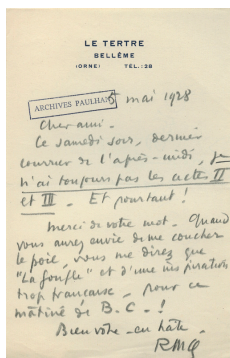 LE TERTRE
BELLÊME
(ORNE) TEL.: 28
ARCHIVES PAULHAN
5 mai 1928
Cher ami.
Ce samedi soir, dernier
courrier de l'après-midi, je
n'ai toujours pas les actes II
et III. Et pourtant !
Merci de votre mot. Quand
vous aurez envie de me coucher
le poil, vous me direz que
"La Gonfle" est d'une inspiration
trop française, pour ce
mâtiné de B. C. _ !
Bien vôtre _ en hâte.
RMG